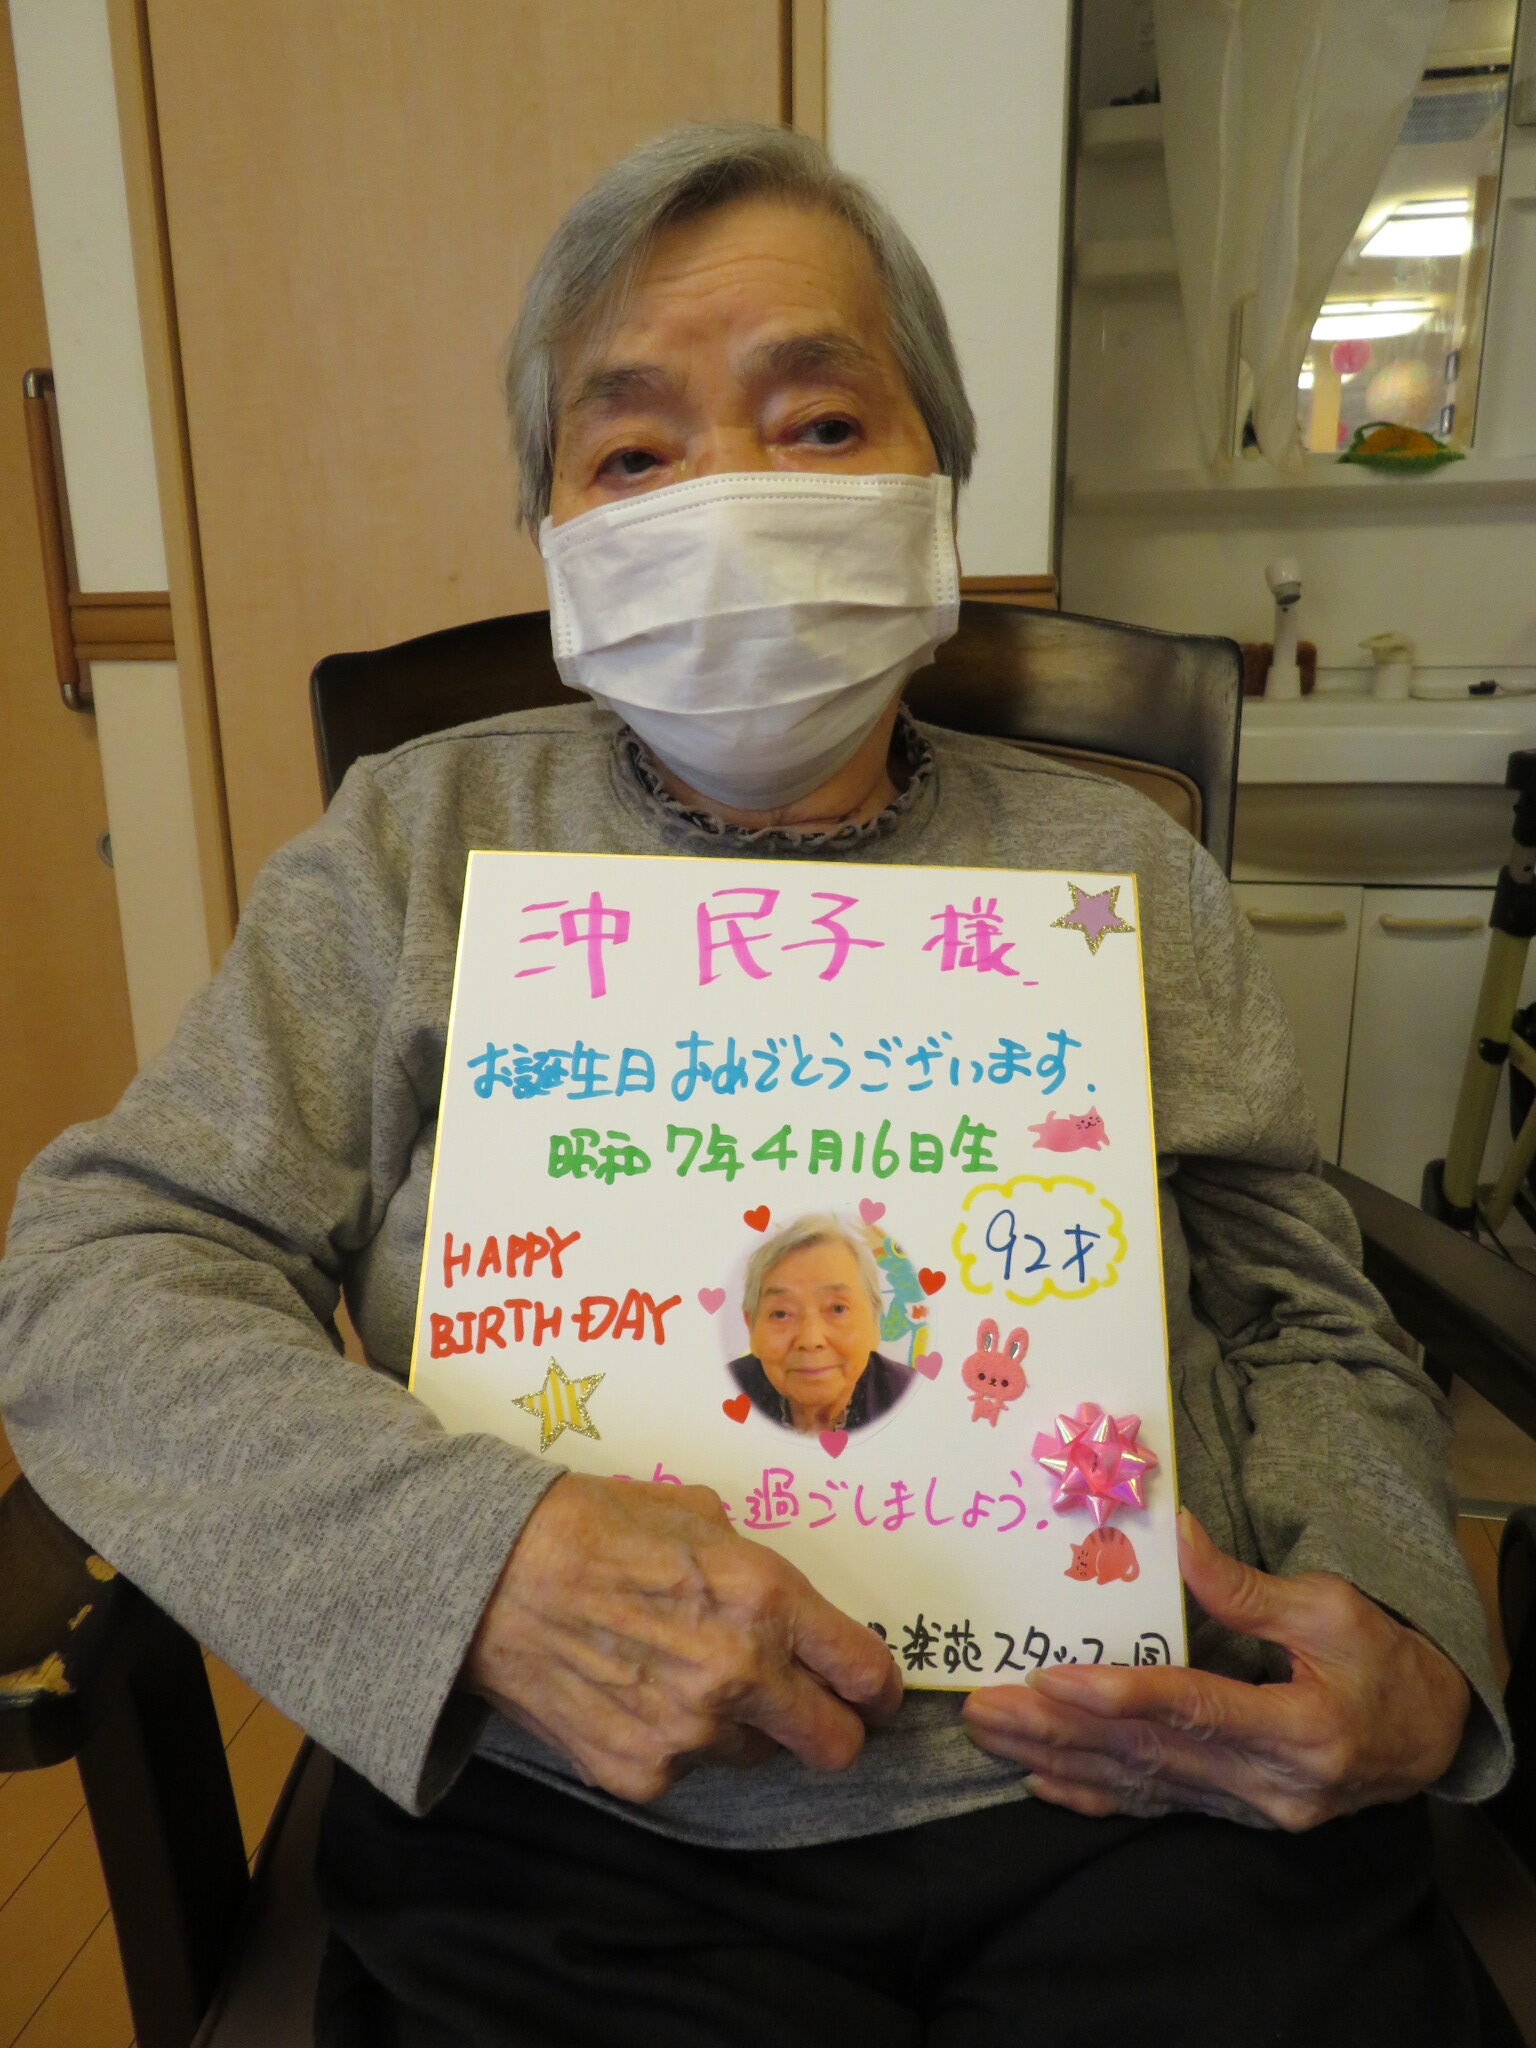 沖 民子 様
お誕生日おめでとうございます.
昭和7年4月16日生
92才
HAPPY
BIRTHDAY
過ごしましょう.
楽苑スタッフ一同